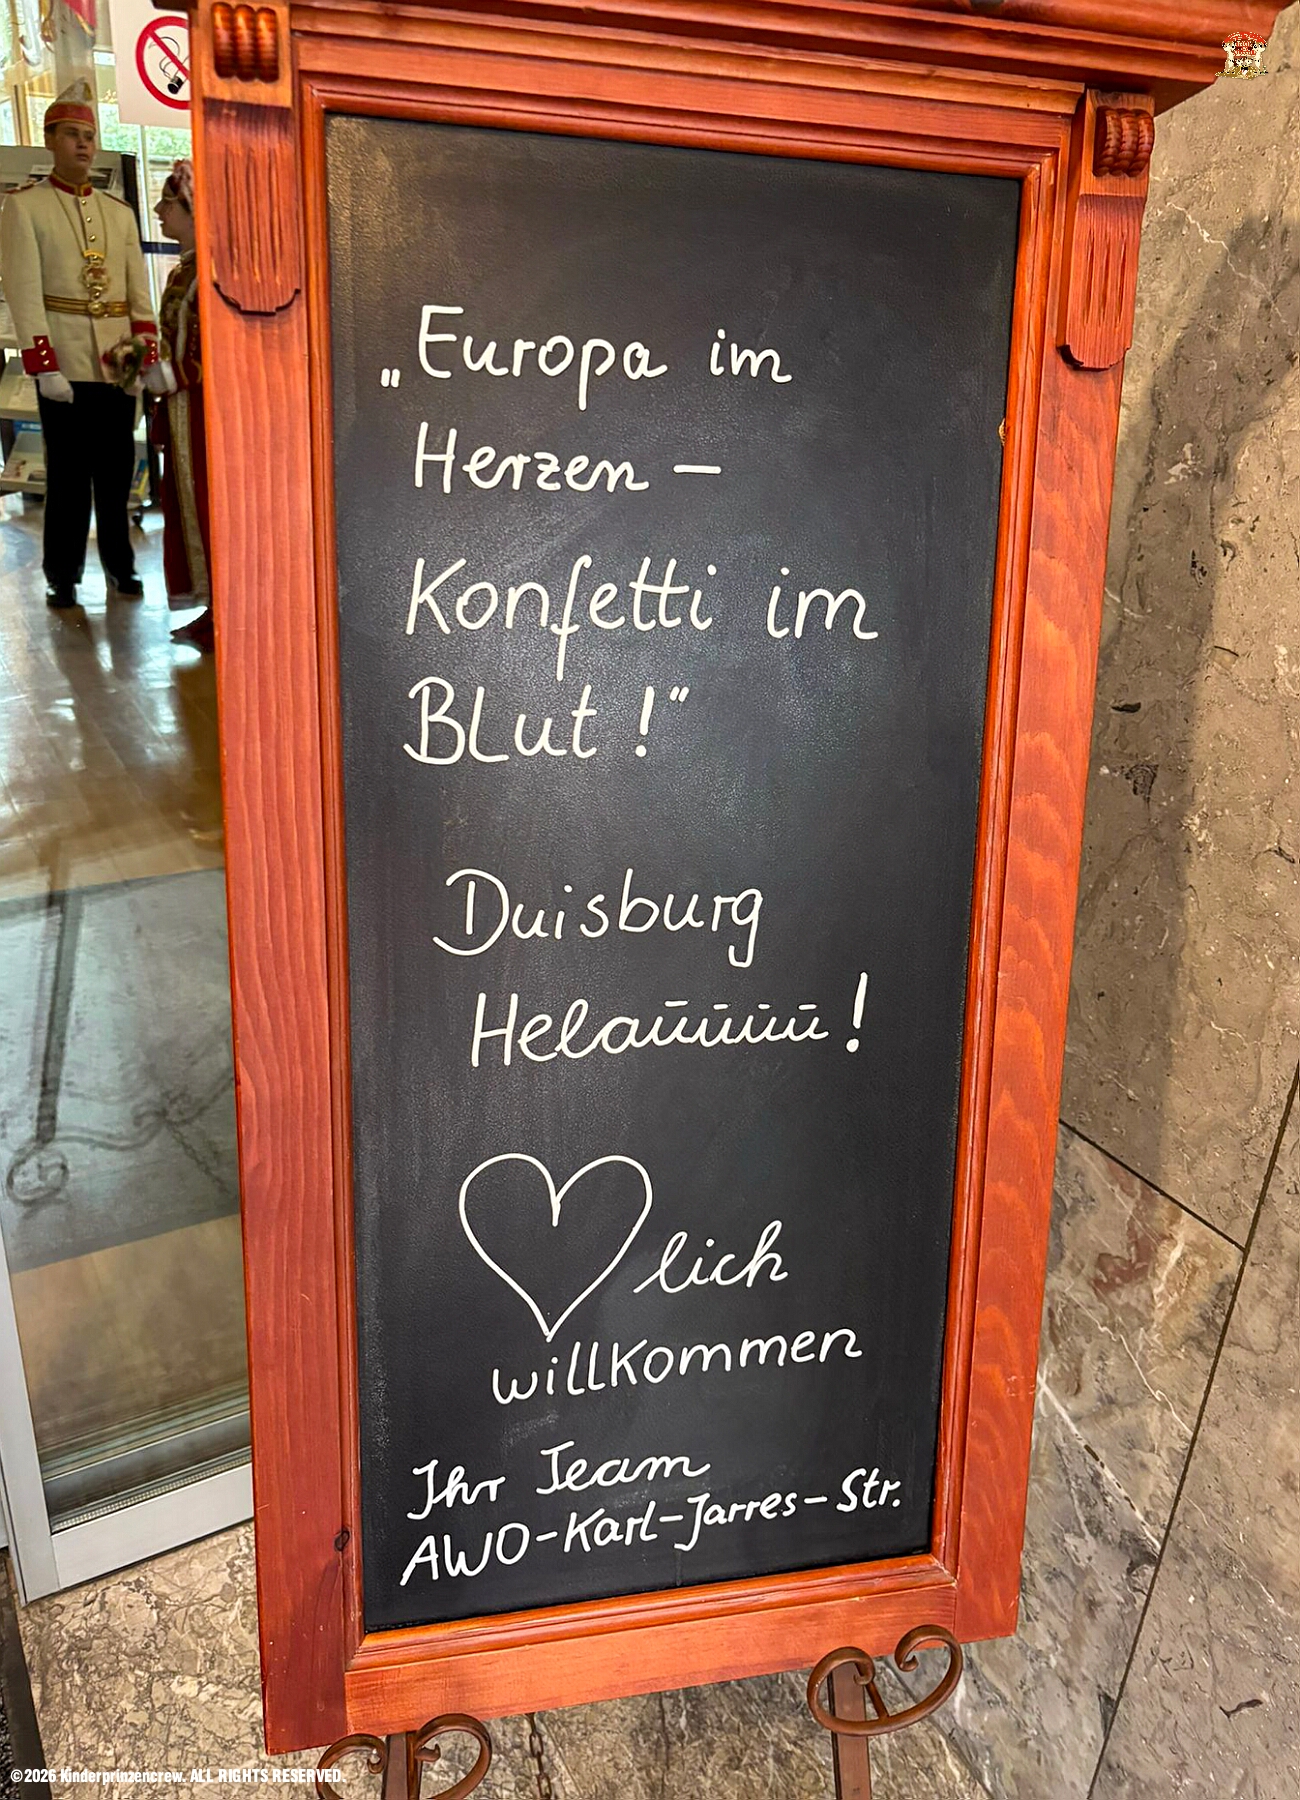 „Europa im
Herzen –
Konfetti im
Blut!“
Duisburg
Helauuuu!
lich
willkommen
Ihr Team
AWO-Karl-Jarres-Str.
©2026 Kinderprinzencrew. ALL RIGHTS RESERVED.